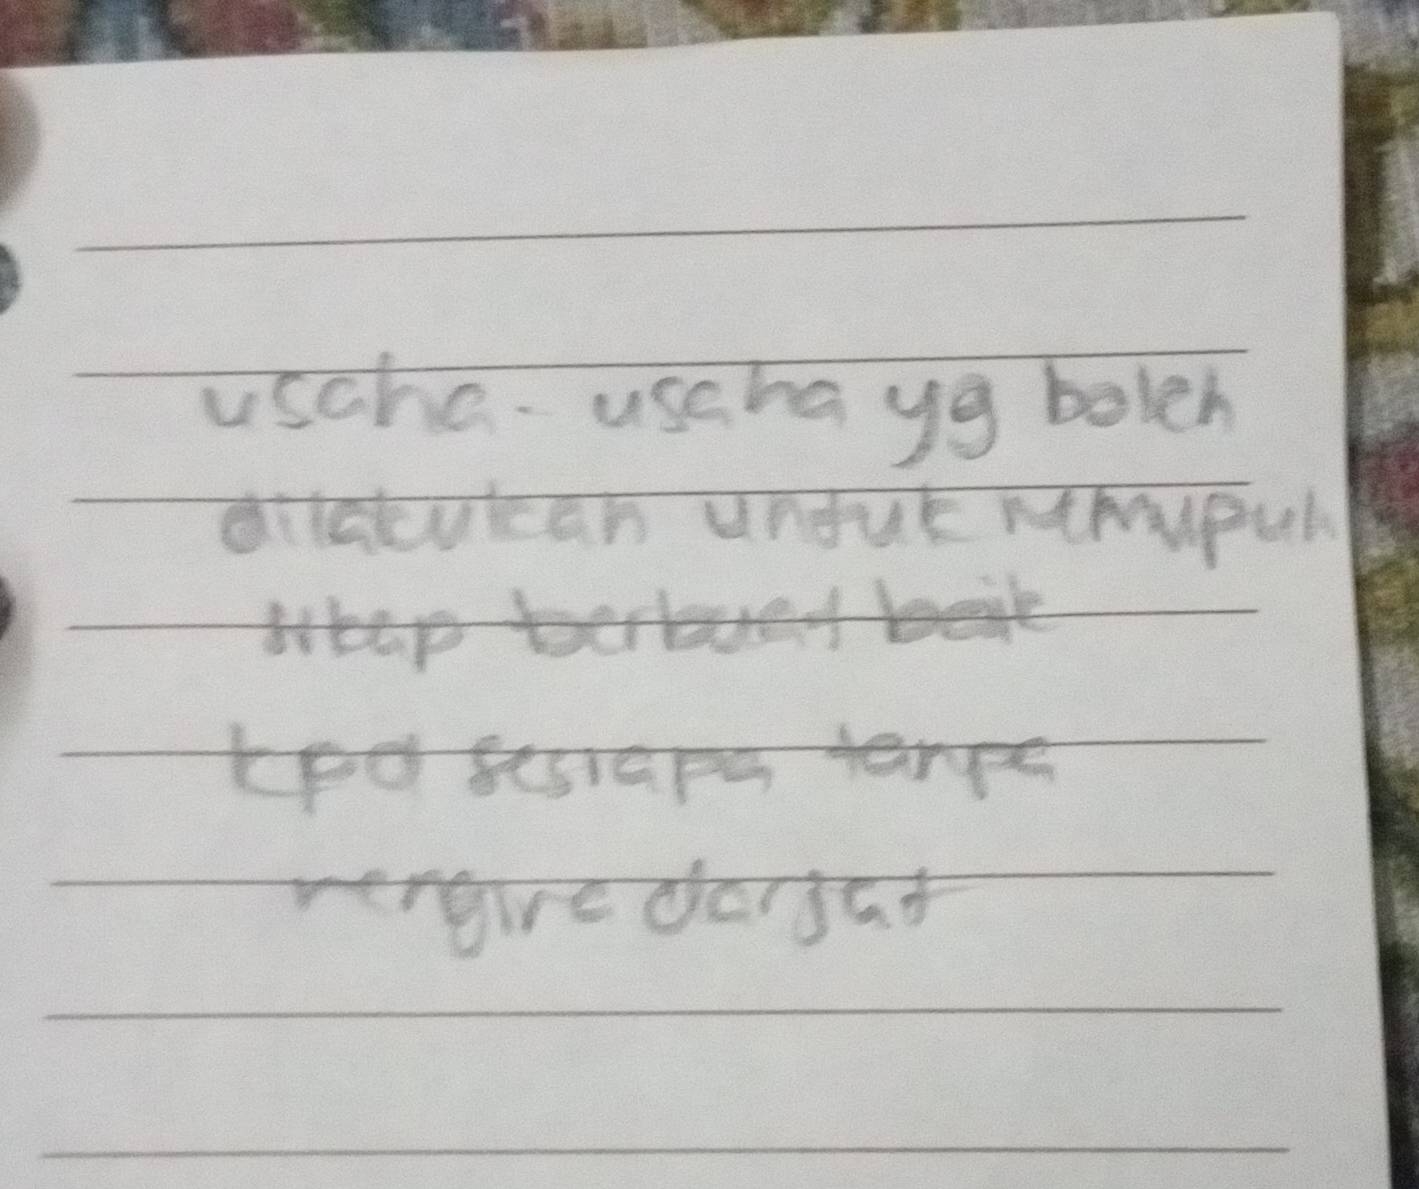 usaha-usaha yg boleh
dilakukan untuk memupuh
sikap berbuat baik
kpd sesiapa tanpa
mengira darjat